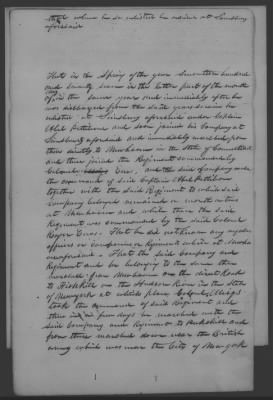 when he so enlisted he resided at Simsbury
aforesaid
That in the Spring of the year Seventeen hundred
and Seventy seven in the latter part of the month
of in the same year and immediately after he
was discharged from the said years service he
enlisted at Simsbury aforesaid under Captain
Abel Pettibone and soon joined his Company at
Simsbury aforesaid and immediately marched from
thence directly to in the State of Connecticut
and there joined the Regiment commanded by
Colonel Enos, and the said company under
the command of said Captain Abel Pettibone
together with the said Regiment to which said
company belonged remained a month or two
at and while there the said
Regiment was commanded by the said Colonel
Roger Enos. That he did not know any regular
officers or companies or Regiments while at
aforesaid. That the said Company and
Regiment and he belonging to the same then
marched from on the direct Road
to Fishkill on the Hudson River in the state
of New York at which place Colonel Meigs
took the command of said Regiment and
there in a few days he marched with the
said Company and Regiment to Peekskill and
from there marched down near the British
army which was near the City of New York